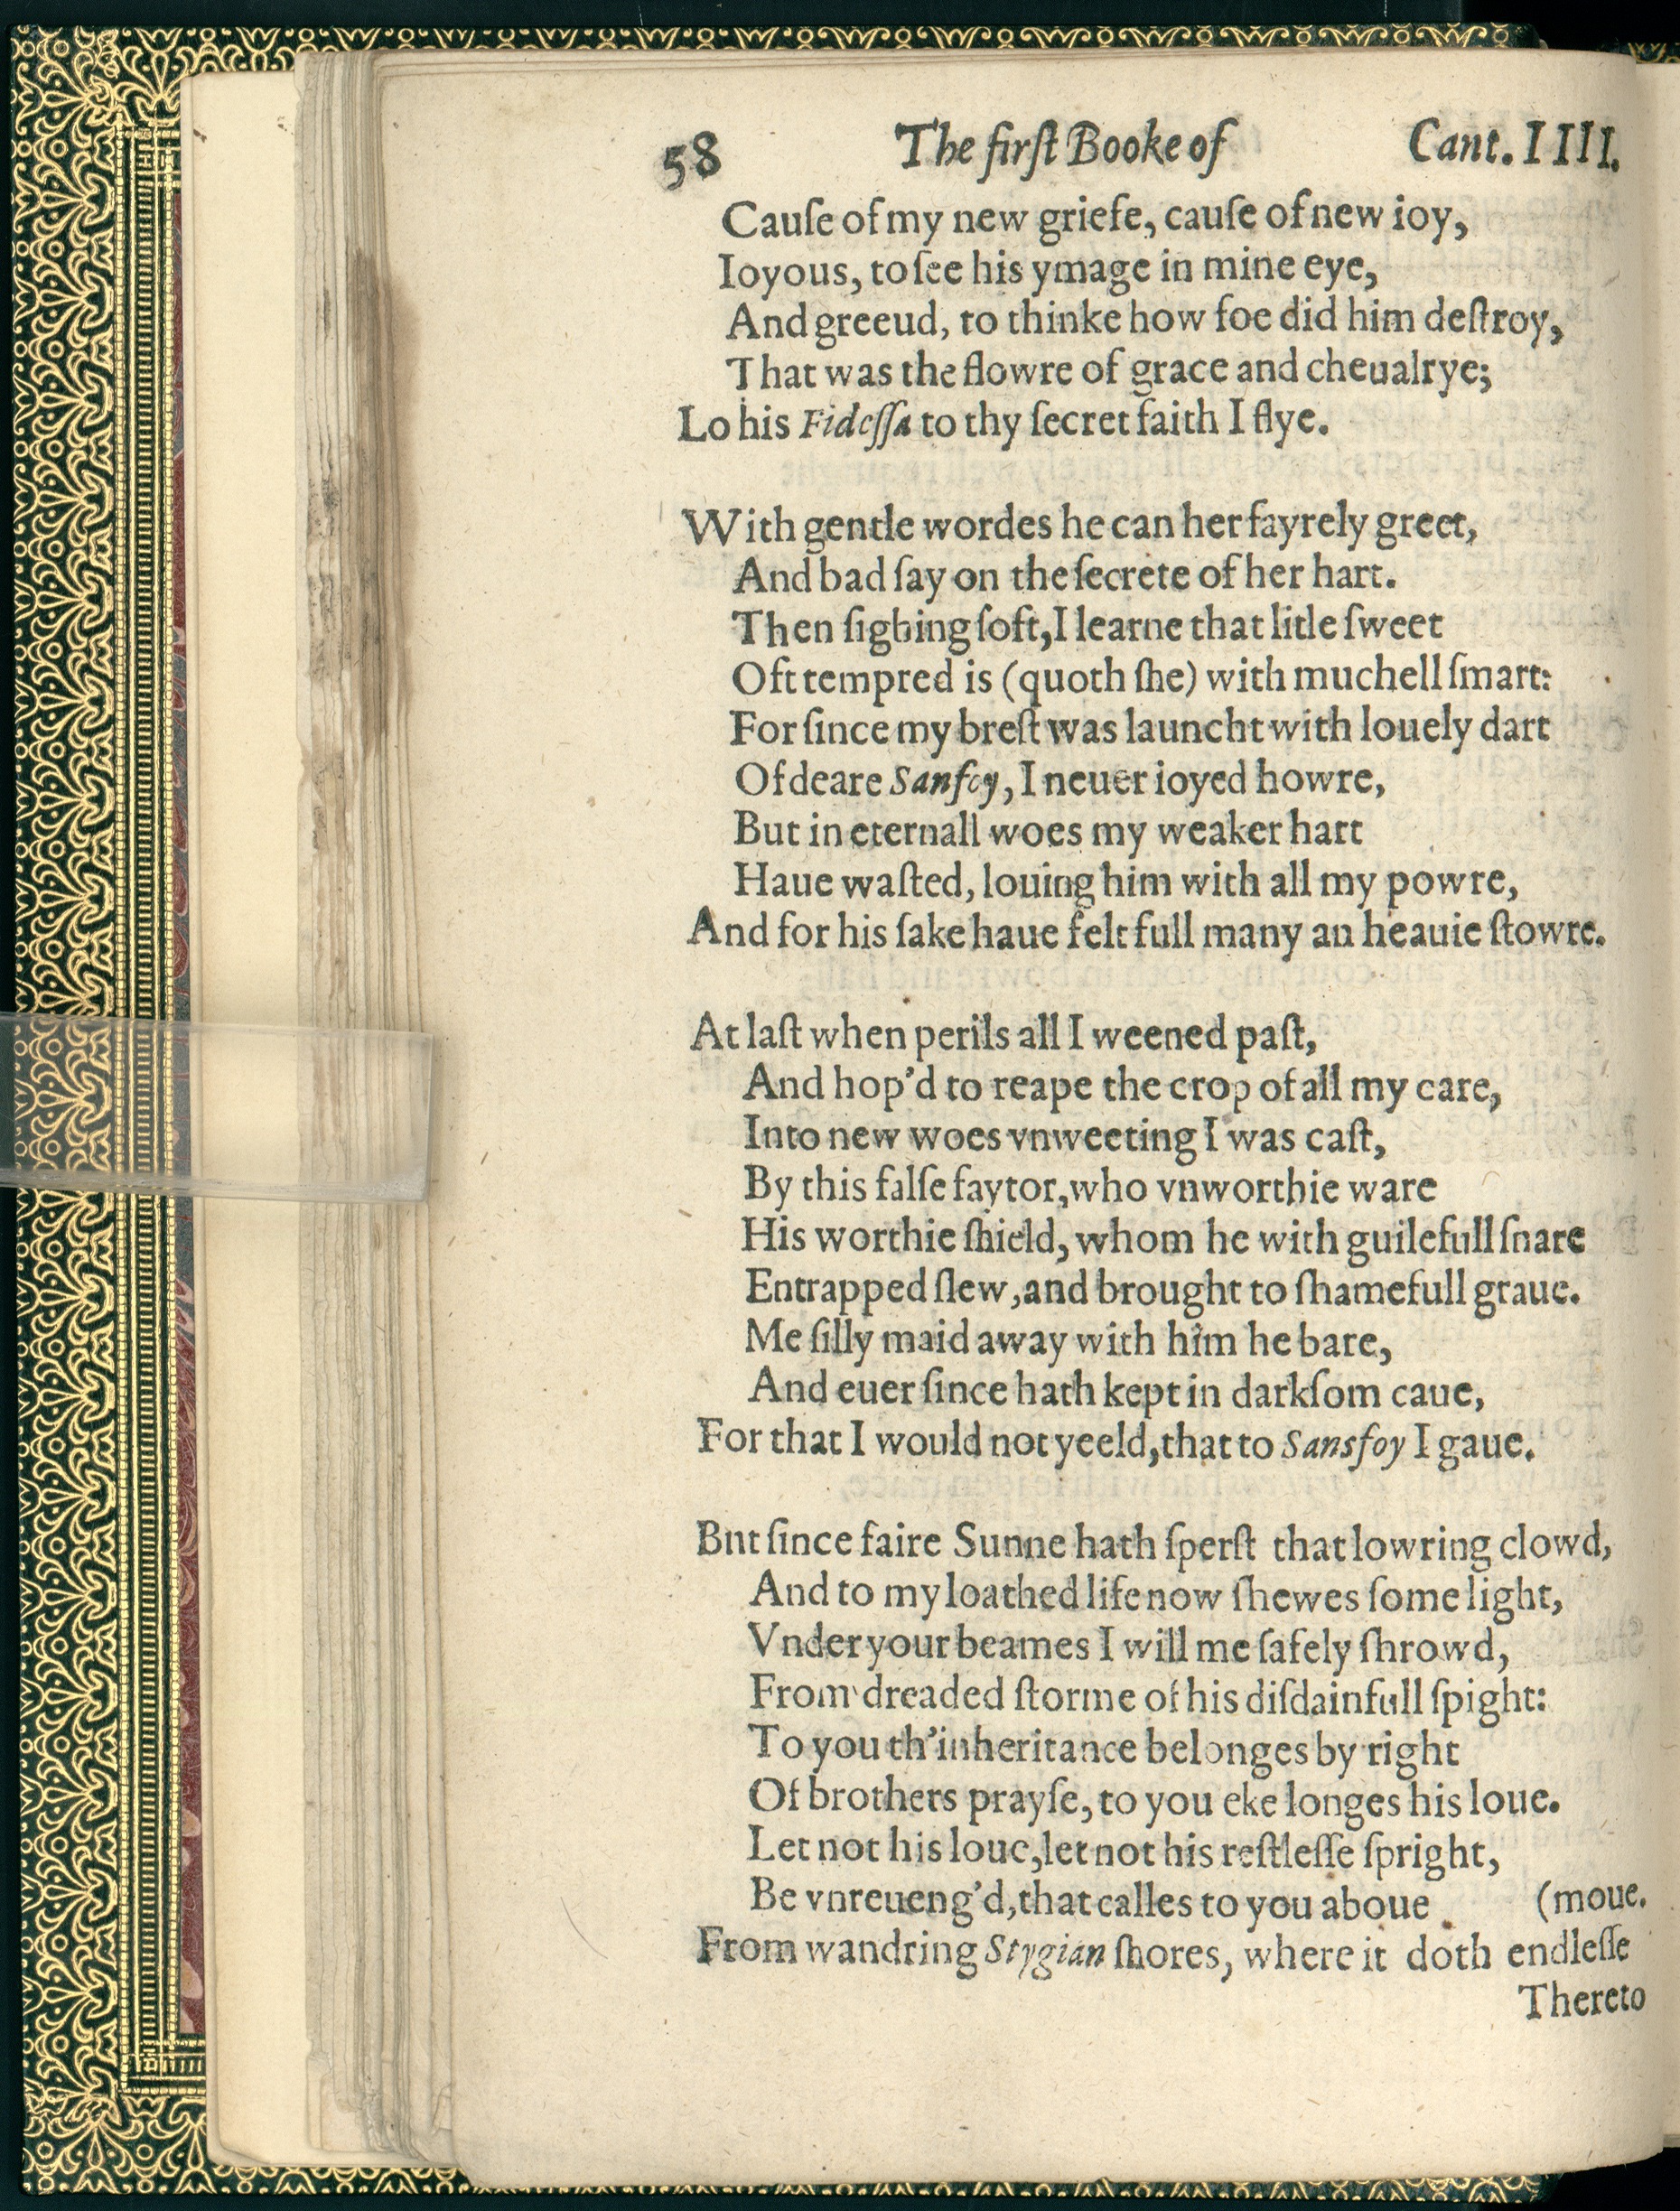 58 The firſt Booke of Cant. IIII.
Cauſe of my new griefe, cauſe of new ioy,
Ioyous, to ſee his ymage in mine eye,
And greeud, to thinke how foe did him deſtroy,
That was the flowre of grace and cheualrye;
Lo his Fideſſa to thy ſecret faith I flye.
With gentle wordes he can her fayrely greet,
And bad ſay on the ſecrete of her hart.
Then ſighing ſoft, I learne that litle ſweet
Oft tempred is (quoth ſhe) with muchell ſmart:
For ſince my breſt was launcht with louely dart
Of deare Sanſoy, I neuer ioyed howre,
But in eternall woes my weaker hart
Haue waſted, louing him with all my powre,
And for his ſake haue felt full many an heauie ſtowre.
At laſt when perils all I weened paſt,
And hop'd to reape the crop of all my care,
Into new woes vnweeting I was caſt,
By this falſe faytor, who vnworthie ware
His worthie ſhield, whom he with guilefull ſnare
Entrapped ſlew, and brought to ſhamefull graue.
Me ſilly maid away with him he bare,
And euer ſince hath kept in darkſom caue,
For that I would not yeeld, that to Sansfoy I gaue.
Bnt ſince faire Sunne hath ſperſt that lowring clowd,
And to my loathed life now ſhewes ſome light,
Vnder your beames I will me ſafely ſhrowd,
From dreaded ſtorme of his diſdainfull ſpight:
To you th'inheritance belonges by right
Of brothers prayſe, to you eke longes his loue.
Let not his loue, let not his reſtleſſe ſpright,
Be vnreueng'd, that calles to you aboue (moue.
From wandring Stygian ſhores, where it doth endleſſe
Thereto